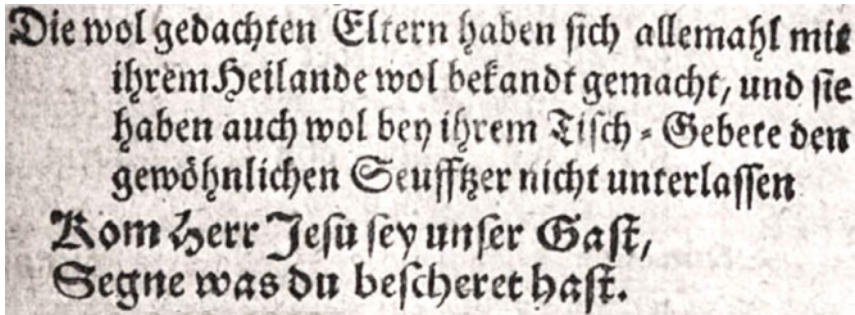 Die wol gedachten Eltern haben sich allemahl mit
ihrem Heilande wol bekandt gemacht, und sie
haben auch wol bey ihrem Tisch-Gebete den
gewöhnlichen Seufftzer nicht unterlassen
Kom Herr Jesu sey unser Gast,
Segne was du bescheret hast.